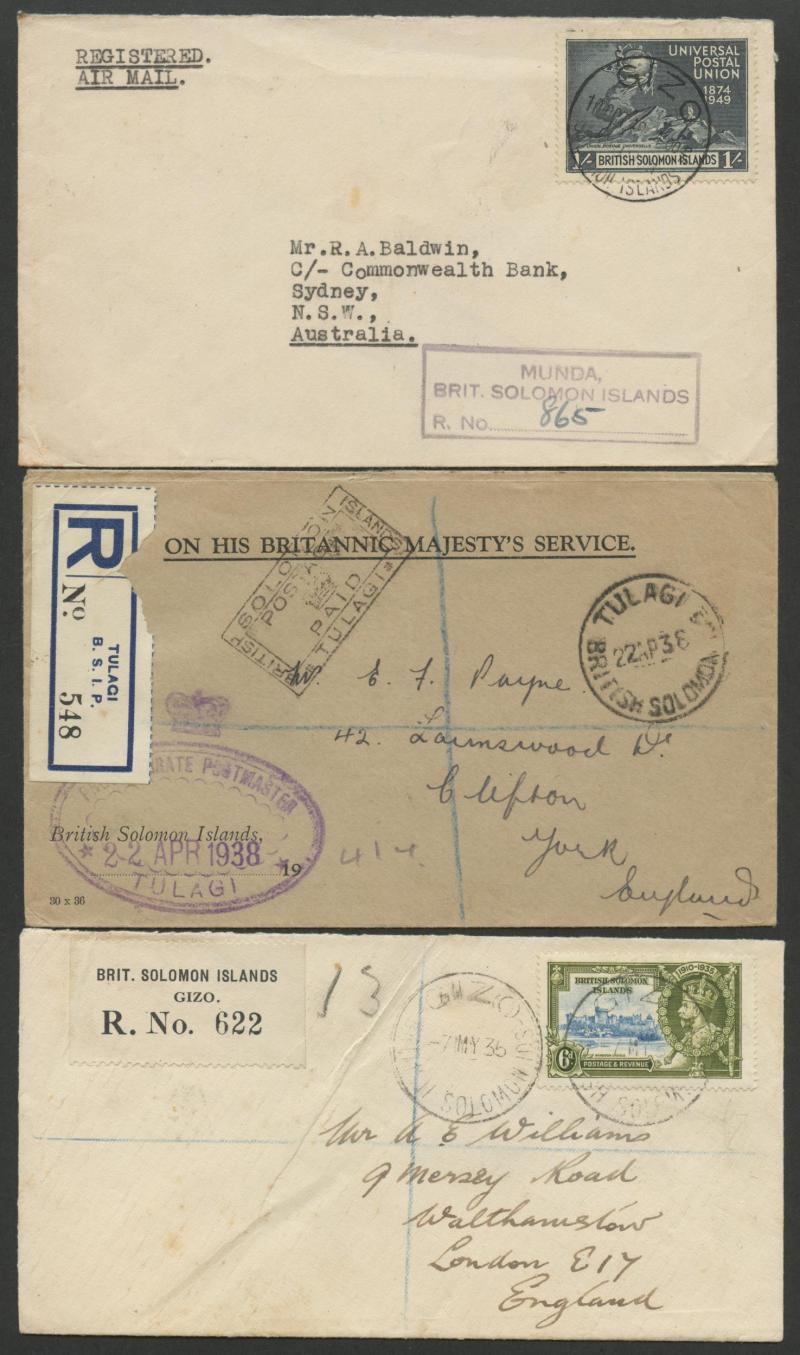 REGISTERED.
AIR MAIL.
UNIVERSAL
POSTAL
UNION
1874
1949
1/- BRITISH SOLOMON ISLANDS 1/-
GIZO
ISLANDS
Mr.R.A.Baldwin,
C/- Commonwealth Bank,
Sydney,
N.S.W.,
Australia.
MUNDA,
BRIT. SOLOMON ISLANDS
R. No. 865
R
TULAGI
B. S. I. P.
No. 548
ON HIS BRITANNIC MAJESTY'S SERVICE.
BRITISH SOLOMON ISLANDS
POSTAGE
PAID
TULAGI
TULAGI
22AP38
BRITISH SOLOMON
Mr. E. F. Payne
42.
Clifton
York
England
POSTMASTER
British Solomon Islands,
22 APR 1938
19
TULAGI
30 x 36
BRIT. SOLOMON ISLANDS
GIZO.
R. No. 622
13
GIZO
-7 MY 36
SOLOMON
BRITISH SOLOMON
ISLANDS
1910-1935
6d
POSTAGE & REVENUE
GIZO
Mr A E Williams
9 Mersey Road
Walthamstow
London E17
England